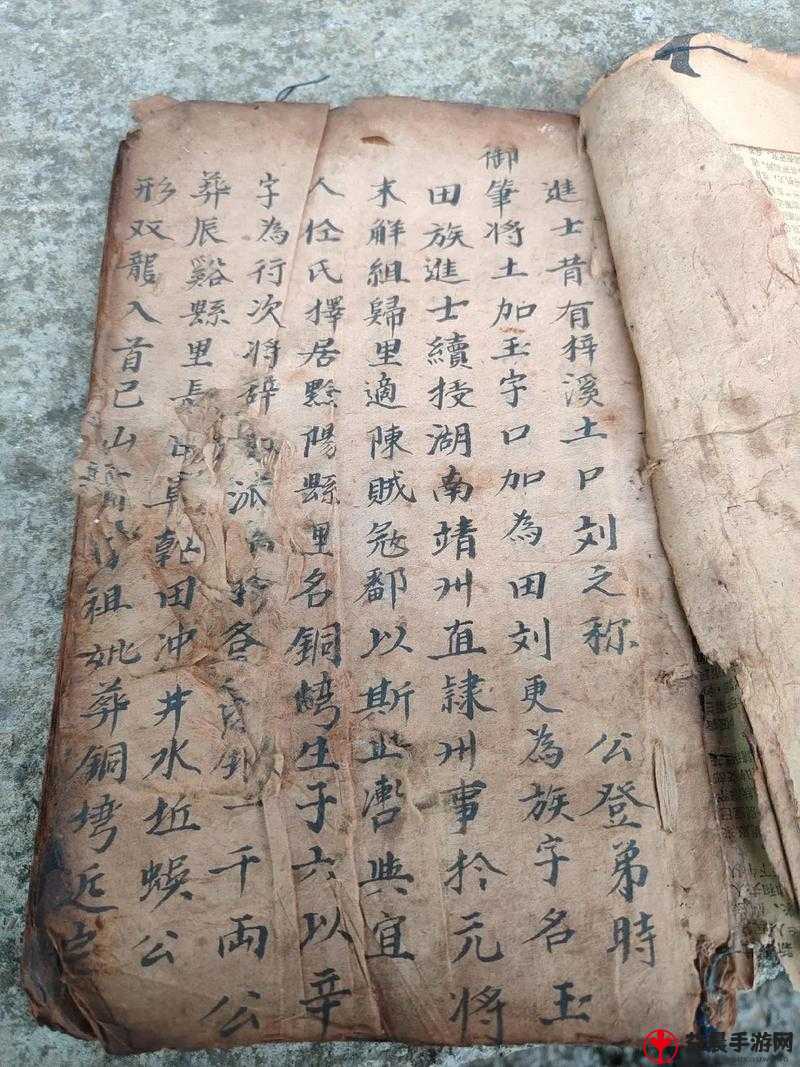 進士昔有梓溪土口刘之称　公登弟時
御筆将土加玉字口加為田刘更為族字名玉
田族進士續授湖南靖州直隷州事於元将
末解組歸里適陳賊寇鄱以斯止讐與宜
人任氏擇居黔陽縣里名銅塆生子六以辛
字為行次将辞 派 各 一千両公
葬辰谿縣里長 草乾田冲井水坵蜈公
形双龍入首巳山 祖妣葬銅塆近